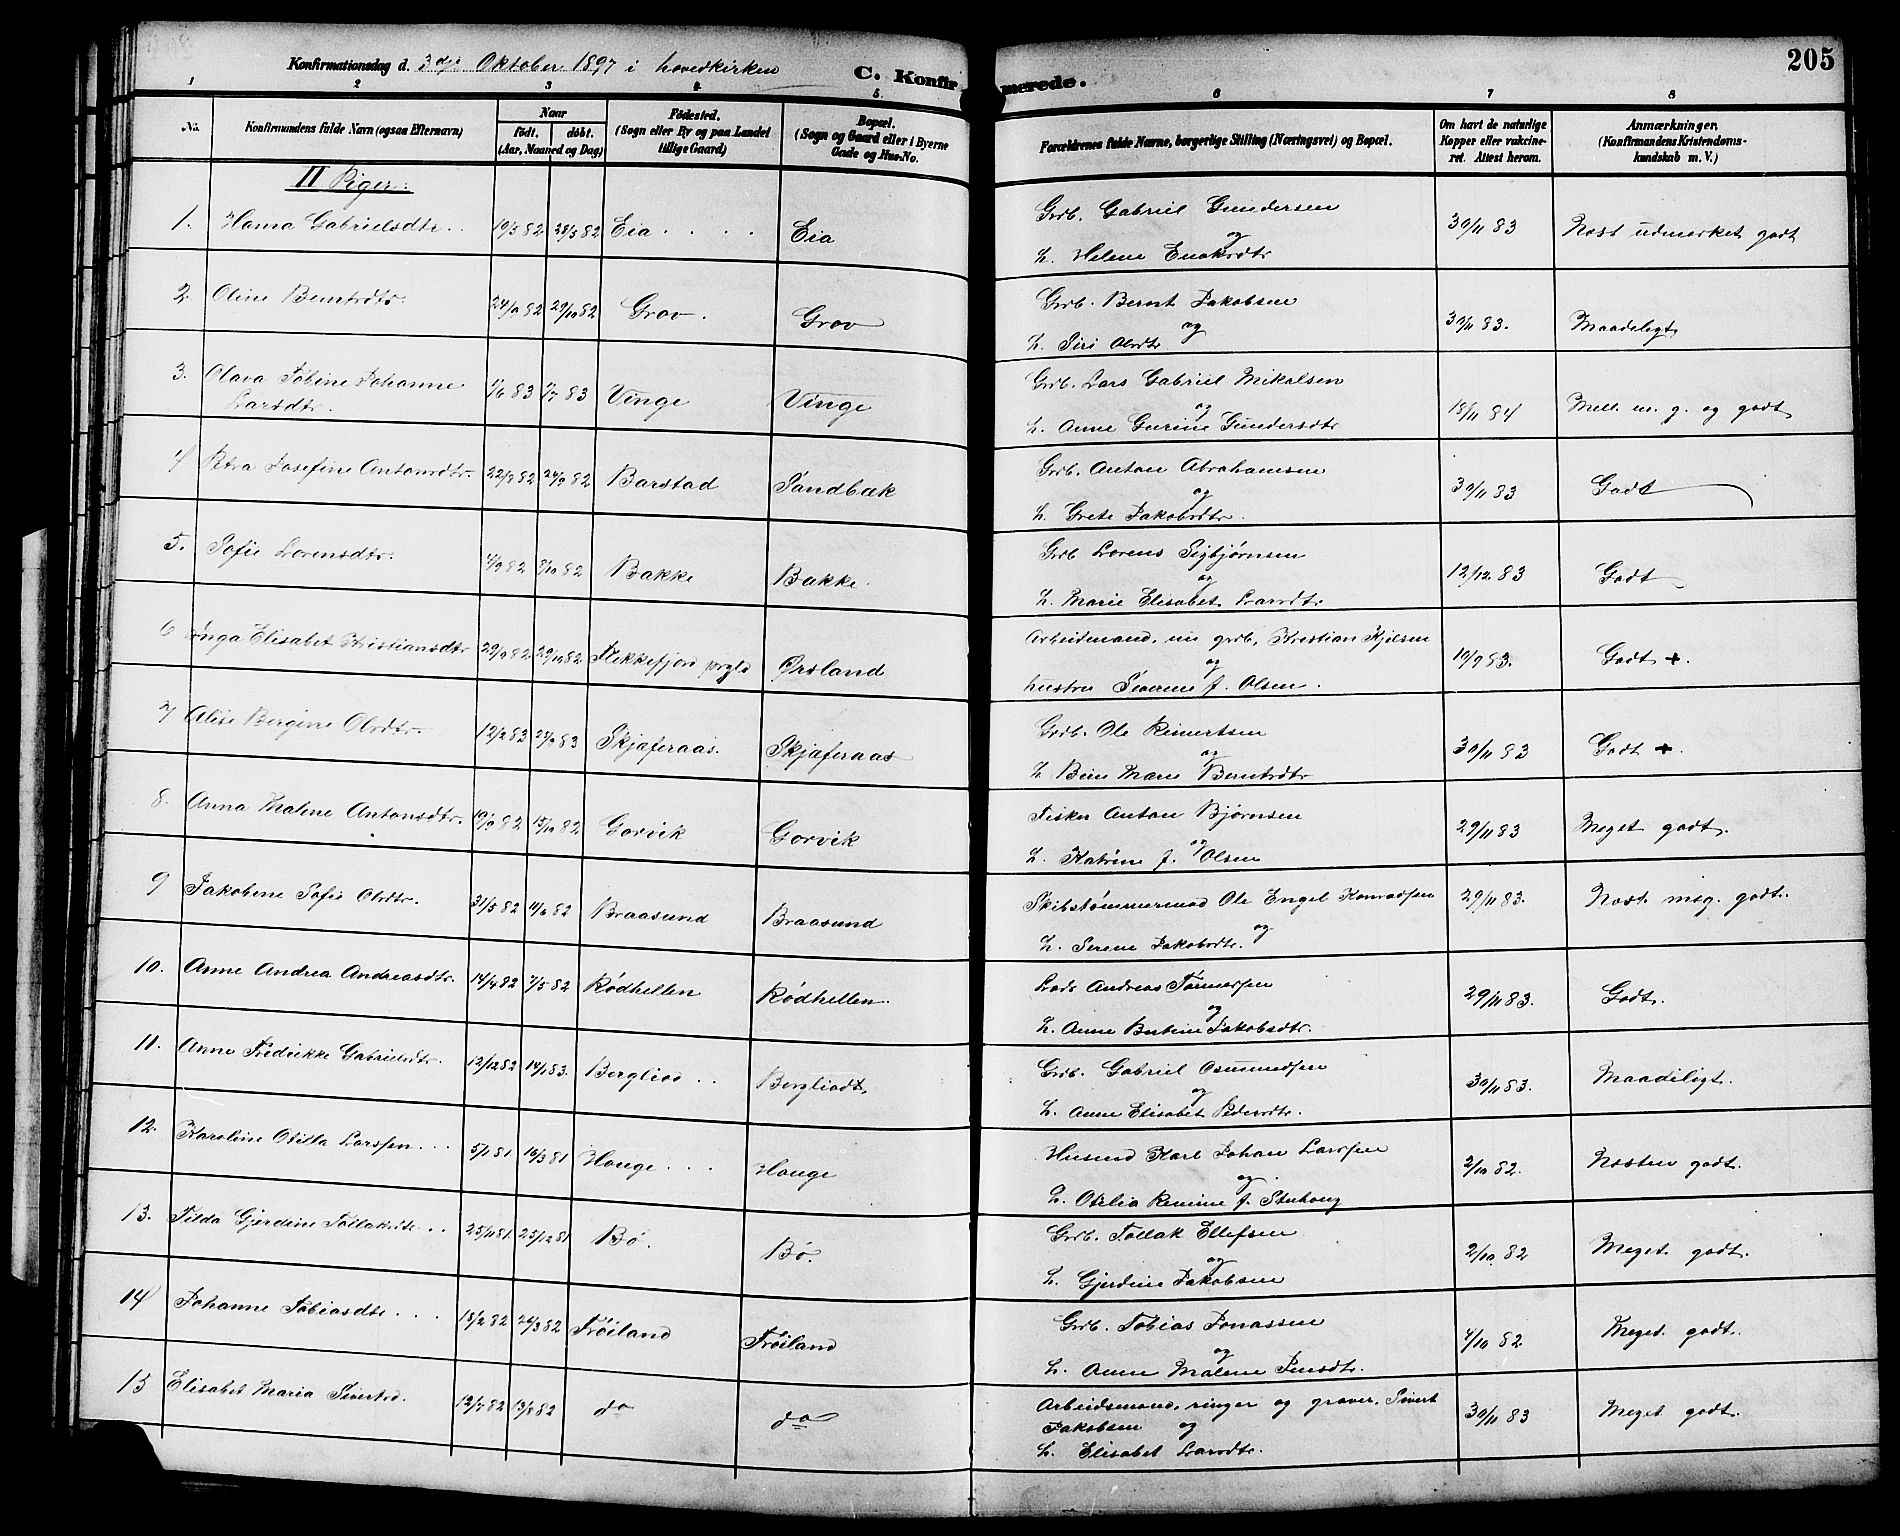 205
Konfirmationsdag d. 3dje Oktober 1897 i hovedkirken
C. Konfirmerede.
1 2 3 4. 5. 6 7 8
No. Konfirmandens fulde Navn (ogsaa Efternavn) Naar født. døbt. (Aar, Maaned og Dag) Fødested. (Sogn eller By og paa Landet tillige Gaard) Bopæl. (Sogn og Gaard eller i Byerne Gade og Hus-No. Forældrenes fulde Navne, borgerlige Stilling (Næringsvei) og Bopæl. Om havt de naturlige Kopper eller vakcineret. Attest herom. Anmærkninger. (Konfirmandens Kristendomskundskab m. V.)
II Piger:
1. Hanna Gabrielsdtr. 19/5 82 28/5 82 Eia Eia Grdb. Gabriel Gundersen 30/11 83 Nost udmerket godt
og
h. Helene Enoksdtr
2. Oline Berntsdtr. 29/10 82 Grov. Grov Grdb. Bernt Jakobsen 30/11 83. Maadeligt
og
h. Siri Olsdtr
3. Olava Tobine Johanne 1/6 83 1/7 83 Vinge Vinge Grdb. Lars Gabriel Mikalsen 18/11 84 Mell. m. g. og godt
Larsdtr. og
h. Anne Gurine Gundersdtr
4 Petra Josefine Antonsdtr. 24/9 82 Barstad Sandbæk Grdb. Anton Abrahamsen 30/11 83 Godt
og
h. Grete Jakobsdtr.
5. Sofie Lorensdtr. 4/9 82 8/10 82 Bakke Bakke. Grdb Lorens Sigbjørnsen 12/12 83 Godt
og
h. Marie Elisabet Larsdtr
6 Inga Elisabet Kristiansdtr 29/9 82 29/10 82 Flekkefjord prgld Ørsland Arbeidsmand, nu grdb, Kristian Kjelsen 10/9 83. Godt +.
og
hustru Severine f. Olsen.
7 Alise Bergine Olsdtr. 12/2 83 Skjaferaas. Skjaferaas Grdb. Ole Reinertsen 30/11 83 Godt +.
og
h Marie Berntsdtr
8. Anna Malene Antonsdtr. 19/9 82 15/10 82 Gorvik Gorvik Fisker Anton Bjørnsen 29/11 83 Meget godt.
og
h. Katrine f. Olsen
9 Jakobine Sofie Olsdtr. 31/5 82 11/6 82 Braasund Braasund Skibstømmermnd Ole Engel Konradsen 29/11 83. Nost. meg. godt.
og
h. Serene Jakobsdtr.
10. Anne Andrea Andreasdtr. 14/4 82 7/5 82 Rødhellen Rødhellen. Lods Andreas Tønnessen 29/11 83. Godt.
og
h. Anne Bertine Jakobsdtr.
11. Anne Fredrikke Gabrielsdtr. 12/12 82 14/1 83. Bergliod Bergliodt Grdb. Gabriel Osmundsen 30/11 83. Maadeligt.
og
h. Anne Elisabet Pedersdtr.
12. Karoline Otilia Larssen 5/1 81 16/3 81 Houge Houge Husmd Karl Johan Larssen 2/10 82. Nosten godt.
og
h. Otilia f. Stuhoug
13. Tilda Gjerdine Tollaksdtr 25/11 81 25/12 81 Bø. Bø. Grdb. Tollak Ellefsen 2/10 82 Meget godt.
og
h. Gjerdine Jakobsen
14 Johanne Tobiasdtr 18/2 82 26/3 82 Frøiland Frøiland Grdb. Tobias Jonassen 4/10 82 Meget. godt.
og
h. Anne Malene Jensdtr.
15 Elisabet Maria Sivertsd. 12/7 82 13/8 82 do do Arbeidsmand, ringer og graver, Sivert 30/11 83 Meget godt.
Jakobsen og
h. Elisabet Larsdtr.